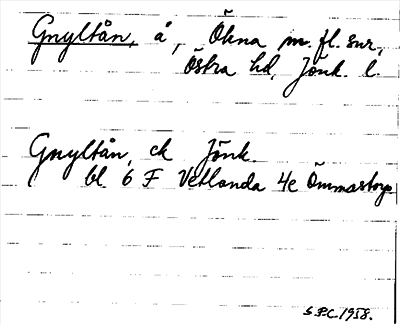 Gnyltån, å, Ökna m. fl. snr,
Östra hd, Jönk. l.
Gnyltån, ek Jönk.
bl. 6 F Vetlanda 4e Ömmastorp
S.P.C. 1958.